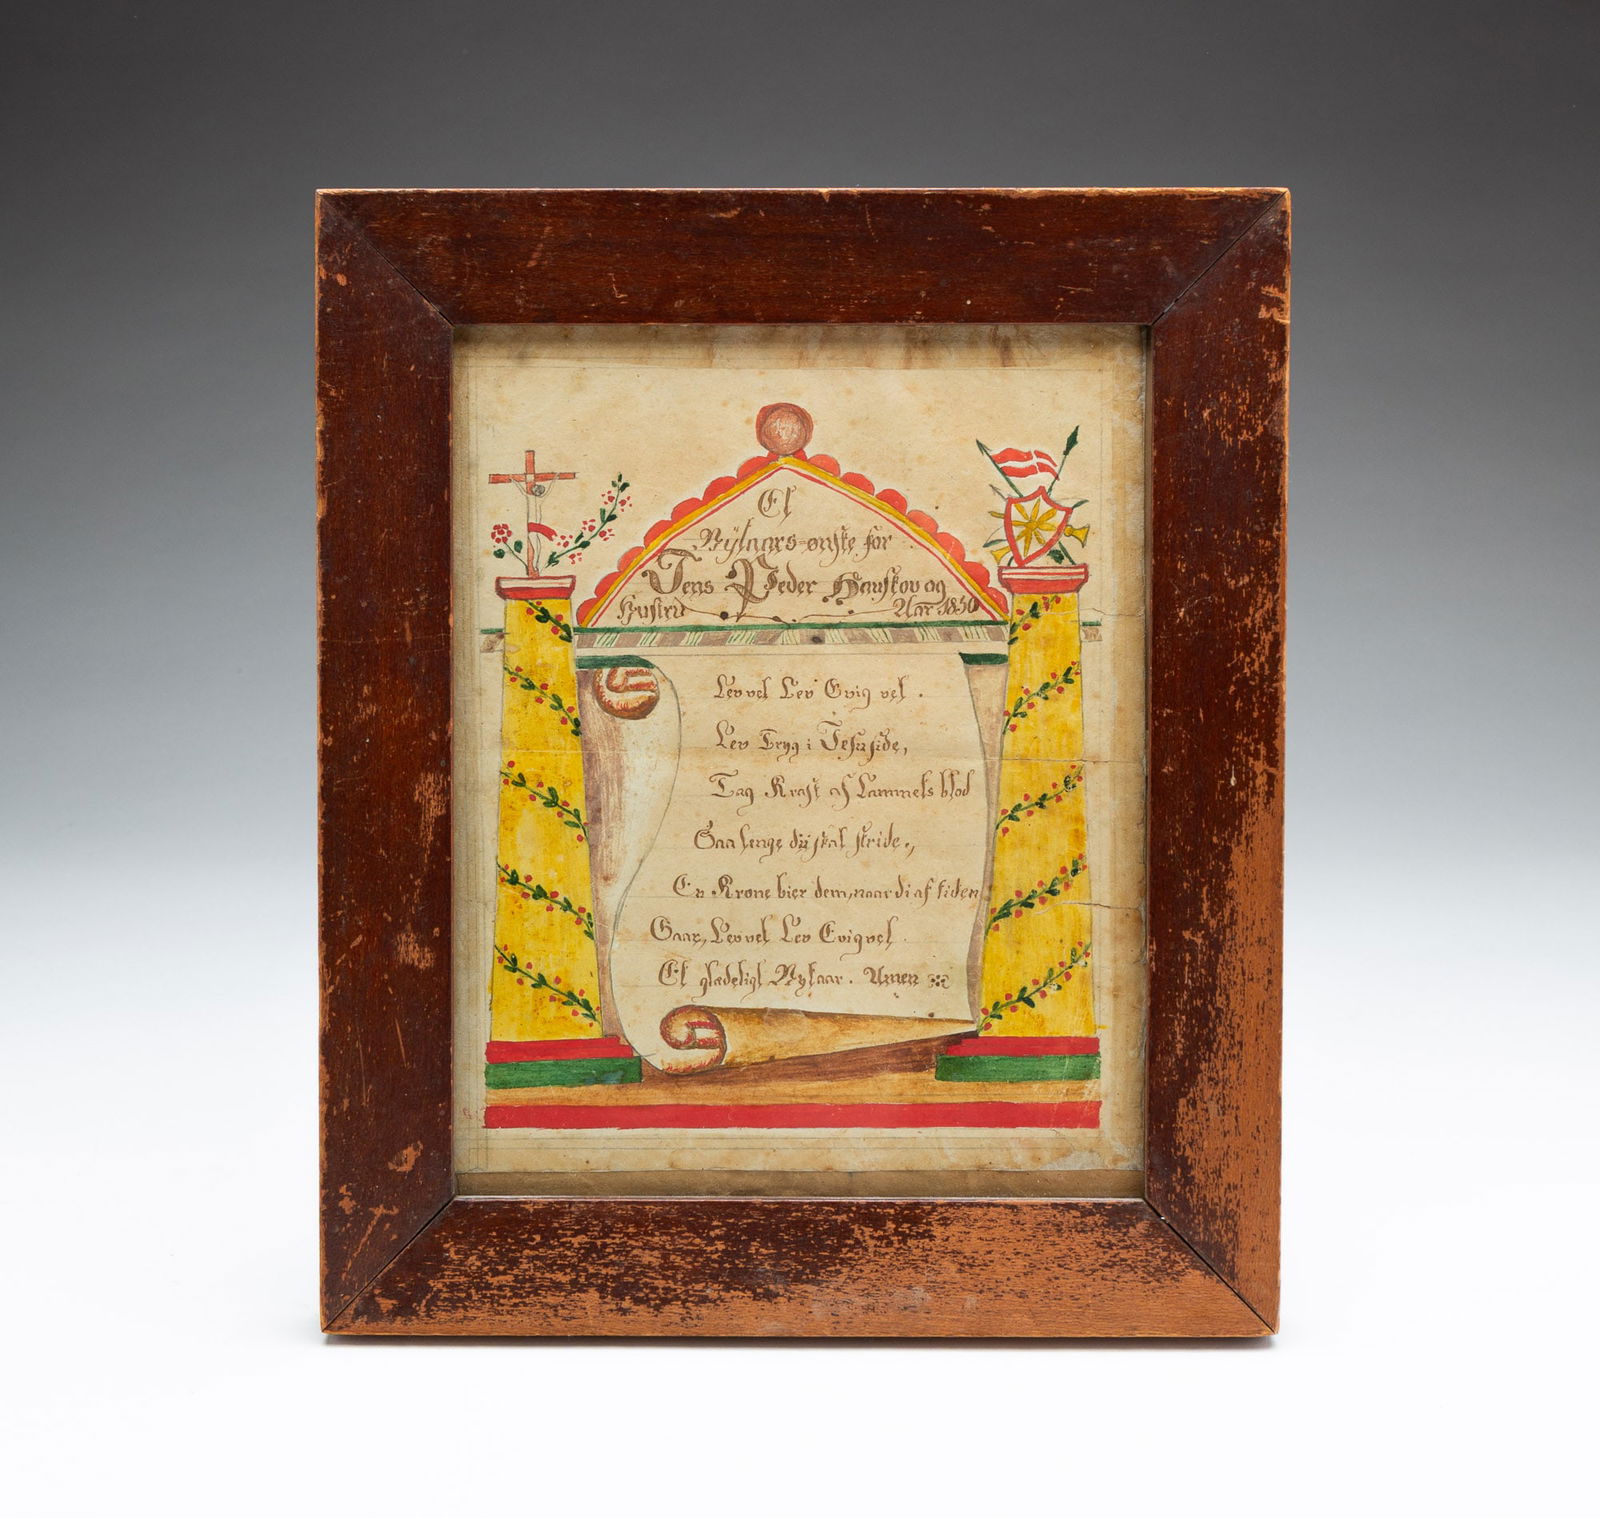 Et
Nÿtaars-ønske for
Jens Peder Hauskov og
Hustru Aar 1850
Lev vel Lev Evig vel.
Lev Tryg i Jesu side,
Tag Kraft af Lammets blod
Saa lenge dü skal stride.,
En Krone bier dem, naar di af tiden
Gaar, Lev vel Lev Evig vel.
Et gladeligt Nytaar. Amen